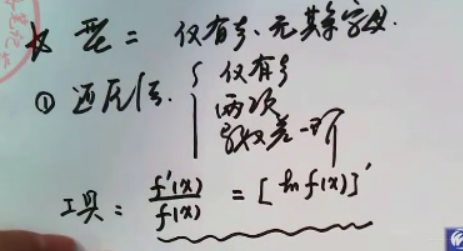 = 仅有ξ、无其余字母.
① 还原法. { 仅有ξ
两项
导数差一阶
工具: f'(x)/f(x) = [ln f(x)]'